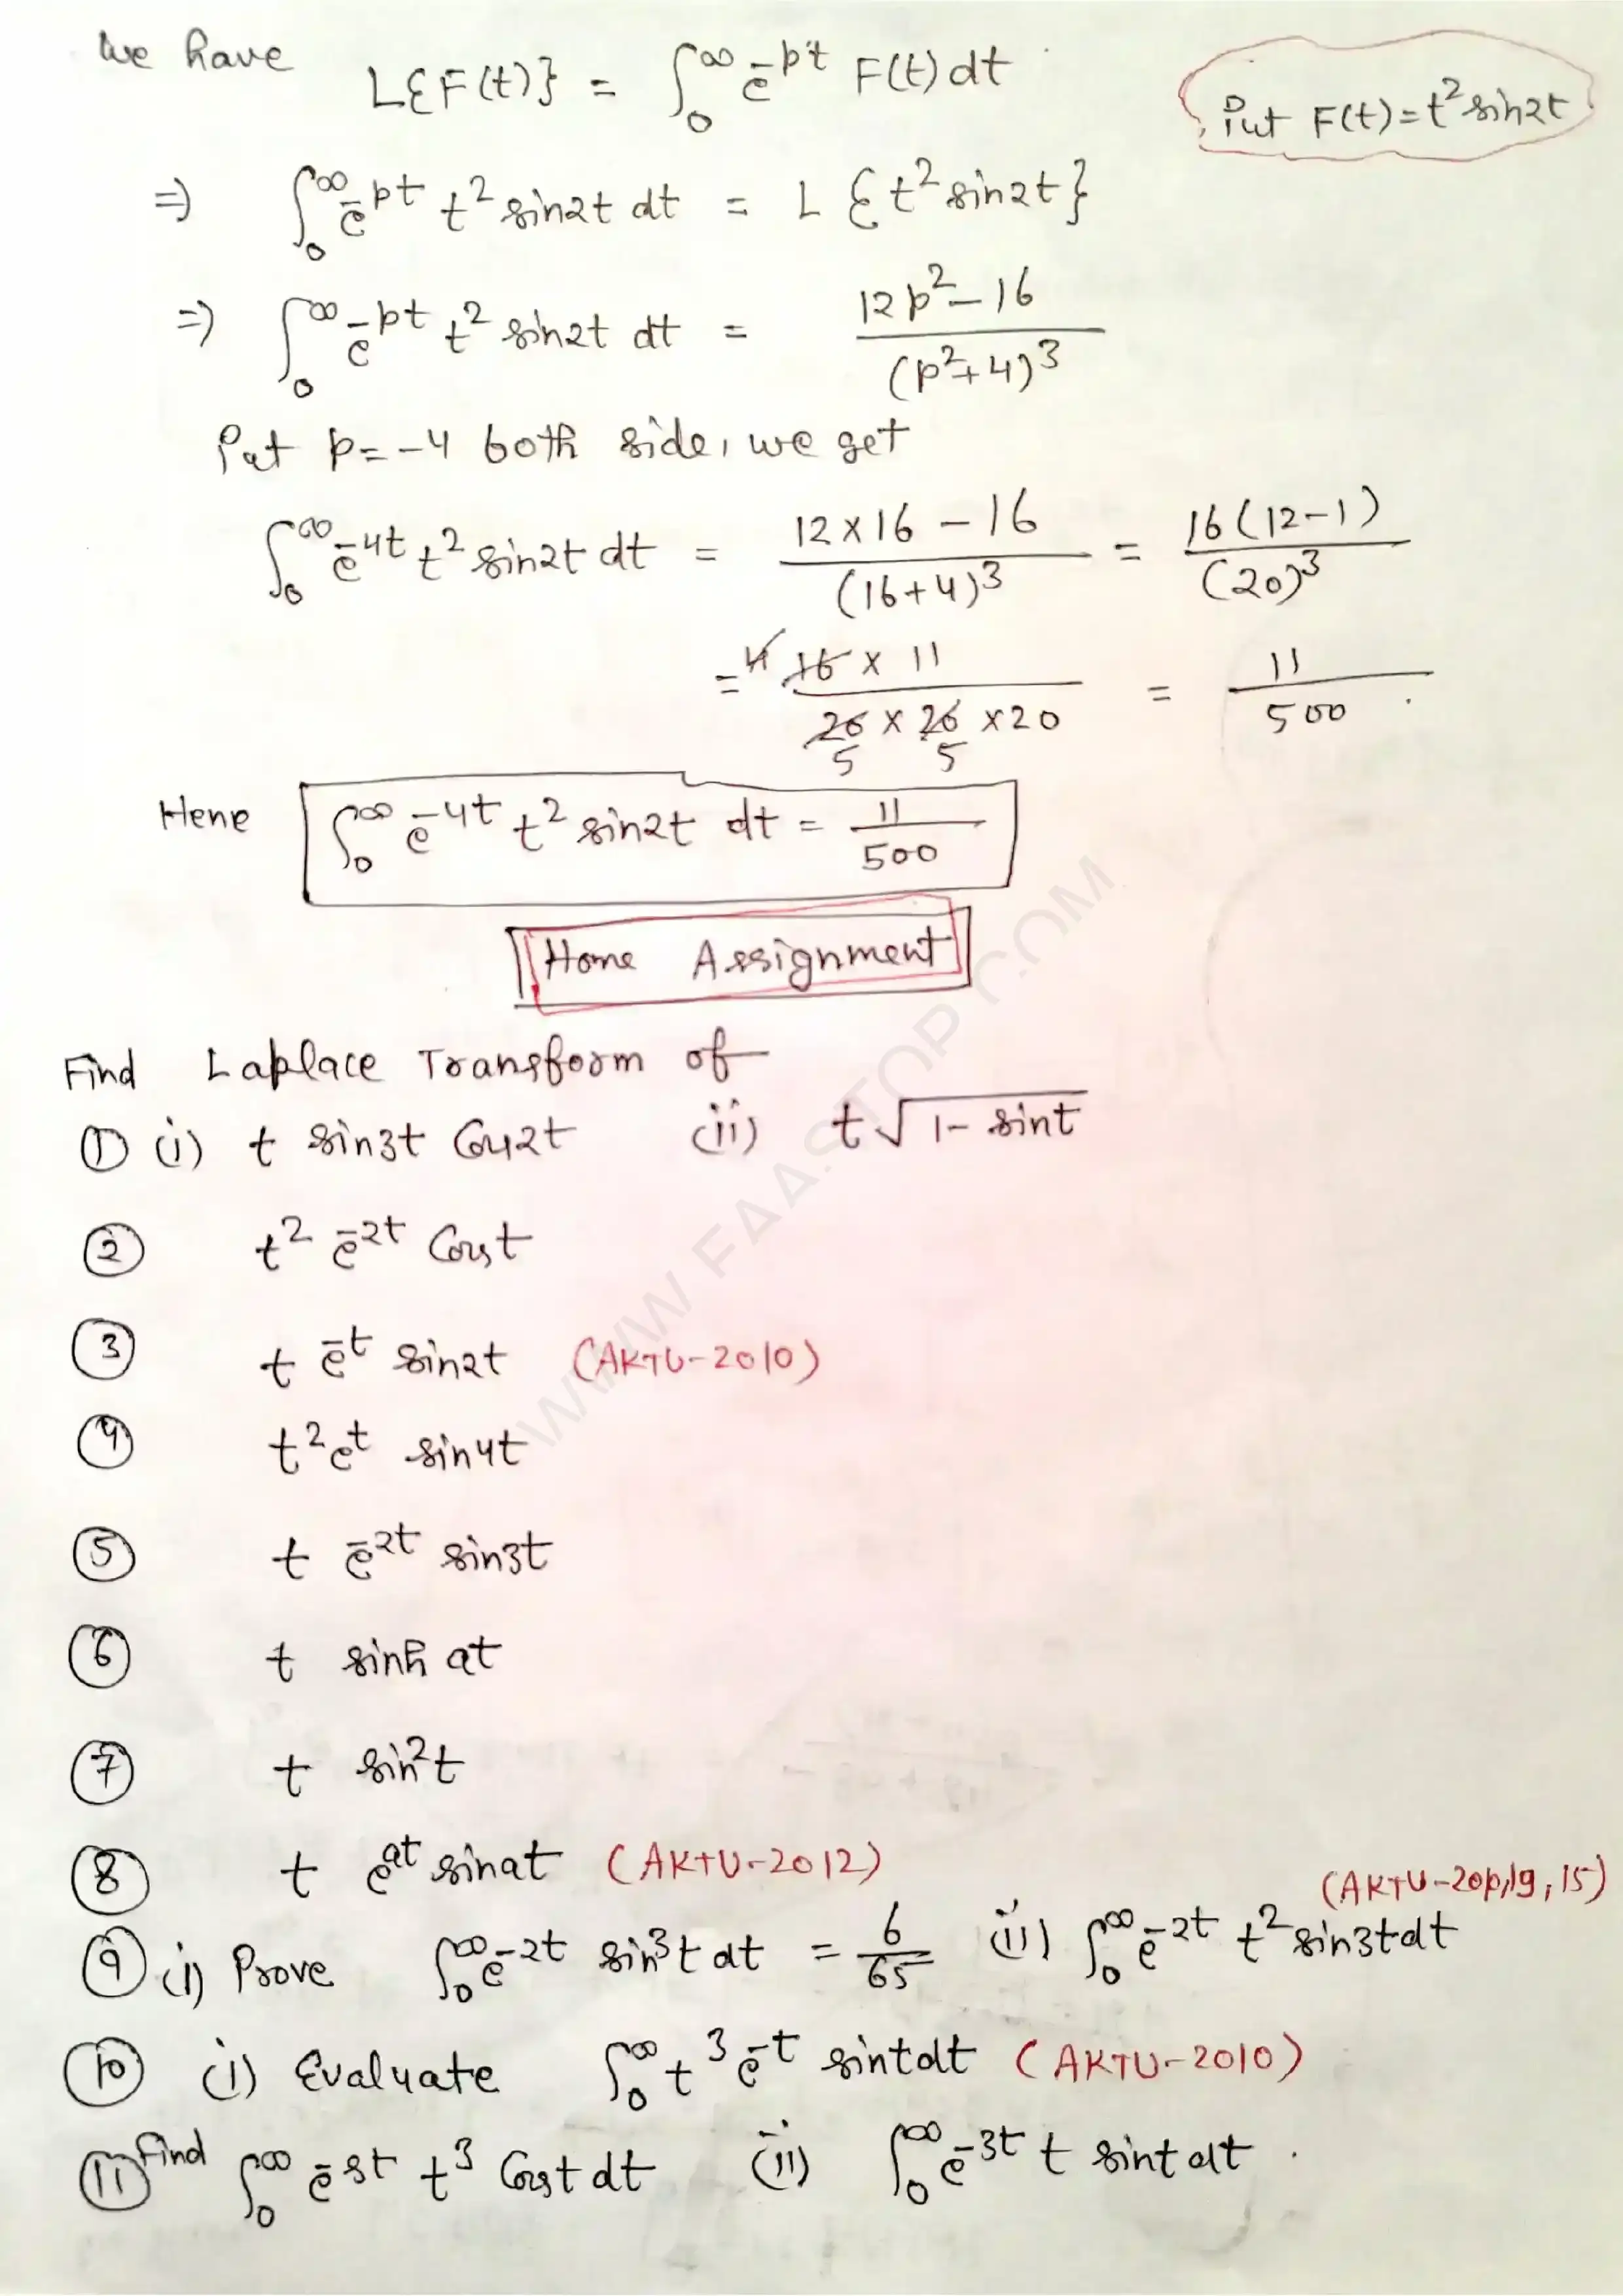 We have L{F(t)} = ∫₀^∞ e^-pt F(t) dt
Put F(t) = t² sin2t
⇒ ∫₀^∞ e^-pt t² sin2t dt = L {t² sin2t}
⇒ ∫₀^∞ e^-pt t² sin2t dt = (12p² - 16)/(p²+4)³
Put p = -4 both side, we get
∫₀^∞ e^-4t t² sin2t dt = (12 x 16 - 16)/(16+4)³ = 16(12-1)/(20)³
= (16 x 11)/(20 x 20 x 20) = 11/500.
Hene ∫₀^∞ e^-4t t² sin2t dt = 11/500
Home Assignment
Find Laplace Transform of
① (i) t sin3t Cos2t (ii) t√(1- sint)
② t² e^-2t Cost
③ t e^-t sin2t (AKTU-2010)
④ t² e^t sin4t
⑤ t e^-2t sin3t
⑥ t sinh at
⑦ t sin²t
⑧ t e^at sinat (AKTU-2012)
⑨ (i) Prove ∫₀^∞ e^-2t sin³t dt = 6/65 (ii) ∫₀^∞ e^-2t t² sin3t dt
⑩ (i) Evaluate ∫₀^∞ t³ e^-t sint dt (AKTU-2010)
⑪ Find ∫₀^∞ e^-st t³ Cost dt (ii) ∫₀^∞ e^-3t t sint dt.
WWW.FAASTOP.COM